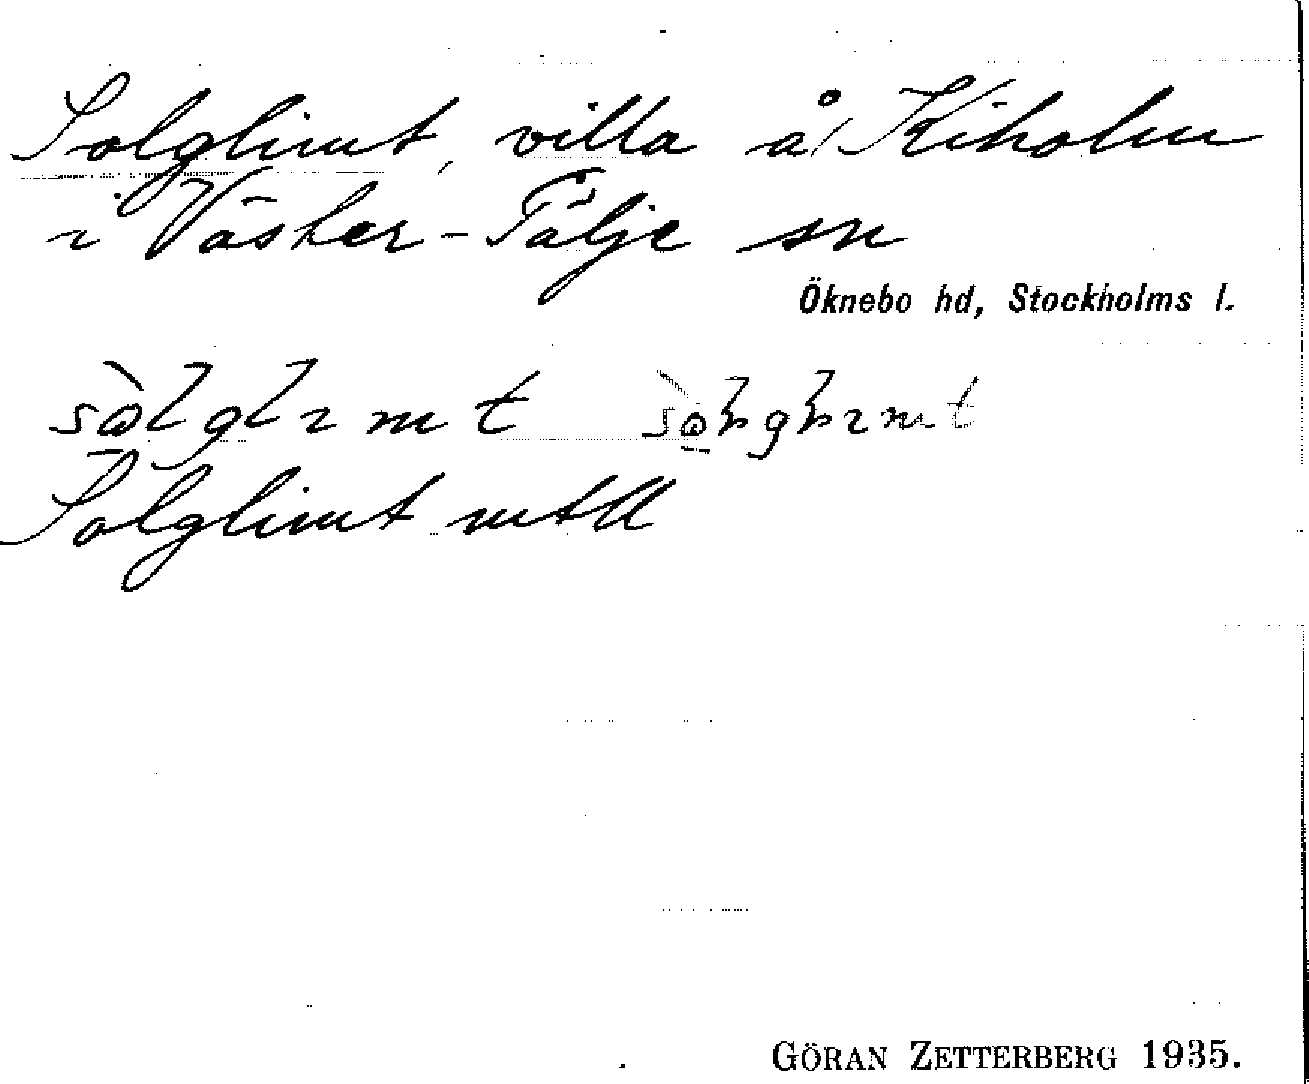 Solglimt, villa å Kiholm
i Väster-Tälje sn
Öknebo hd, Stockholms l.
Solglimt mtll
GÖRAN ZETTERBERG 1935.